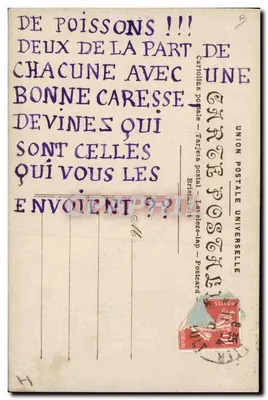 DE POISSONS !!!
DEUX DE LA PART DE
CHACUNE AVEC UNE
BONNE CARESSE_
DEVINEZ QUI
SONT CELLES
QUI VOUS LES
ENVOIENT ??
UNION POSTALE UNIVERSELLE
CARTE POSTALE
Cartolina postale — Tarjeta postal — Levelezo-lap — Postcard
5
H